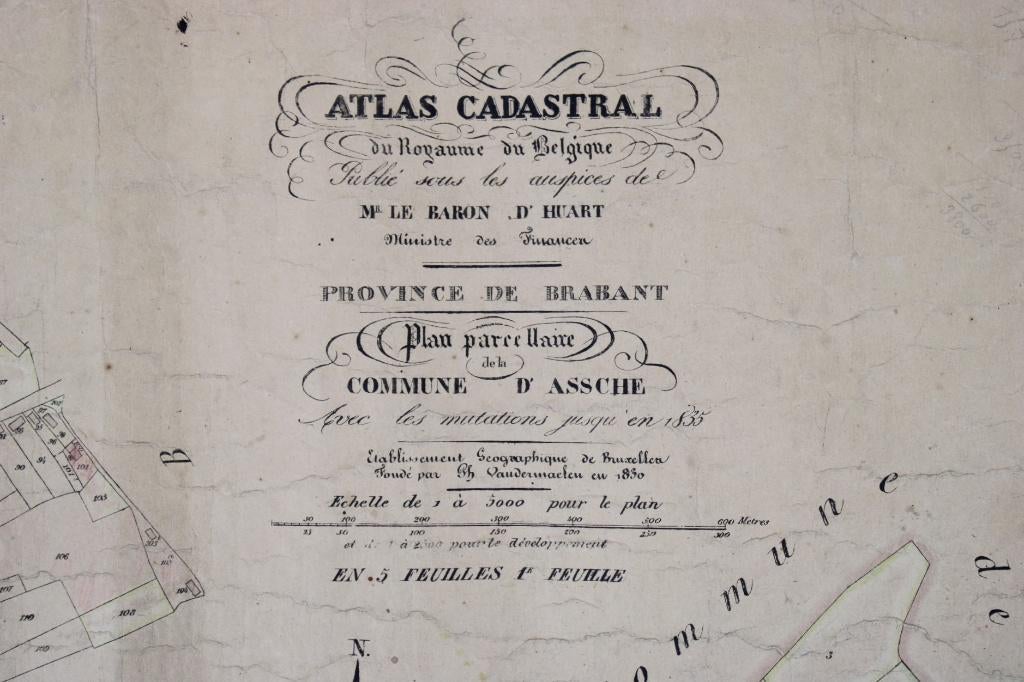 ATLAS CADASTRAL
du Royaume du Belgique
Publié sous les auspices de
MR. LE BARON D'HUART
Ministre des Financen
PROVINCE DE BRABANT
Plan parcellaire
de la
COMMUNE D'ASSCHE
Avec les mutations jusqu'en 1835
Etablissement Geographique de Bruxellen
Fondé par Ph Vandermaelen en 1830
Echelle de 1 à 5000 pour le plan
50 100 200 300 400 500 600 Metres
25 50 100 150 200 250 300
et de 1 à 2500 pour le développement
EN 5 FEUILLES 1E FEUILLE
N.
B
ommune
de
90
94
101
103
106
107
108
109
3